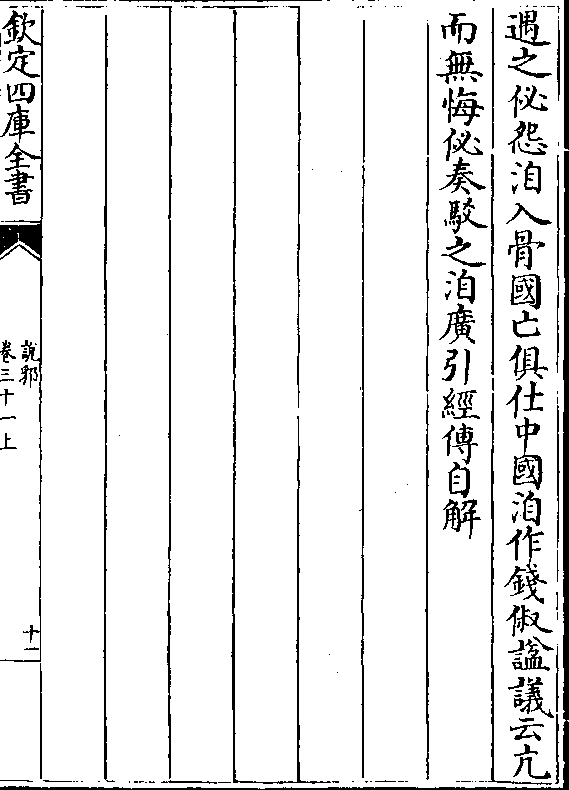 遇之佖怨洎入骨國亡俱仕中國洎作錢俶諡議云亢
而無悔佖奏駁之洎廣引經傳自解
欽定四庫全書
説郛
卷三十一上
十一